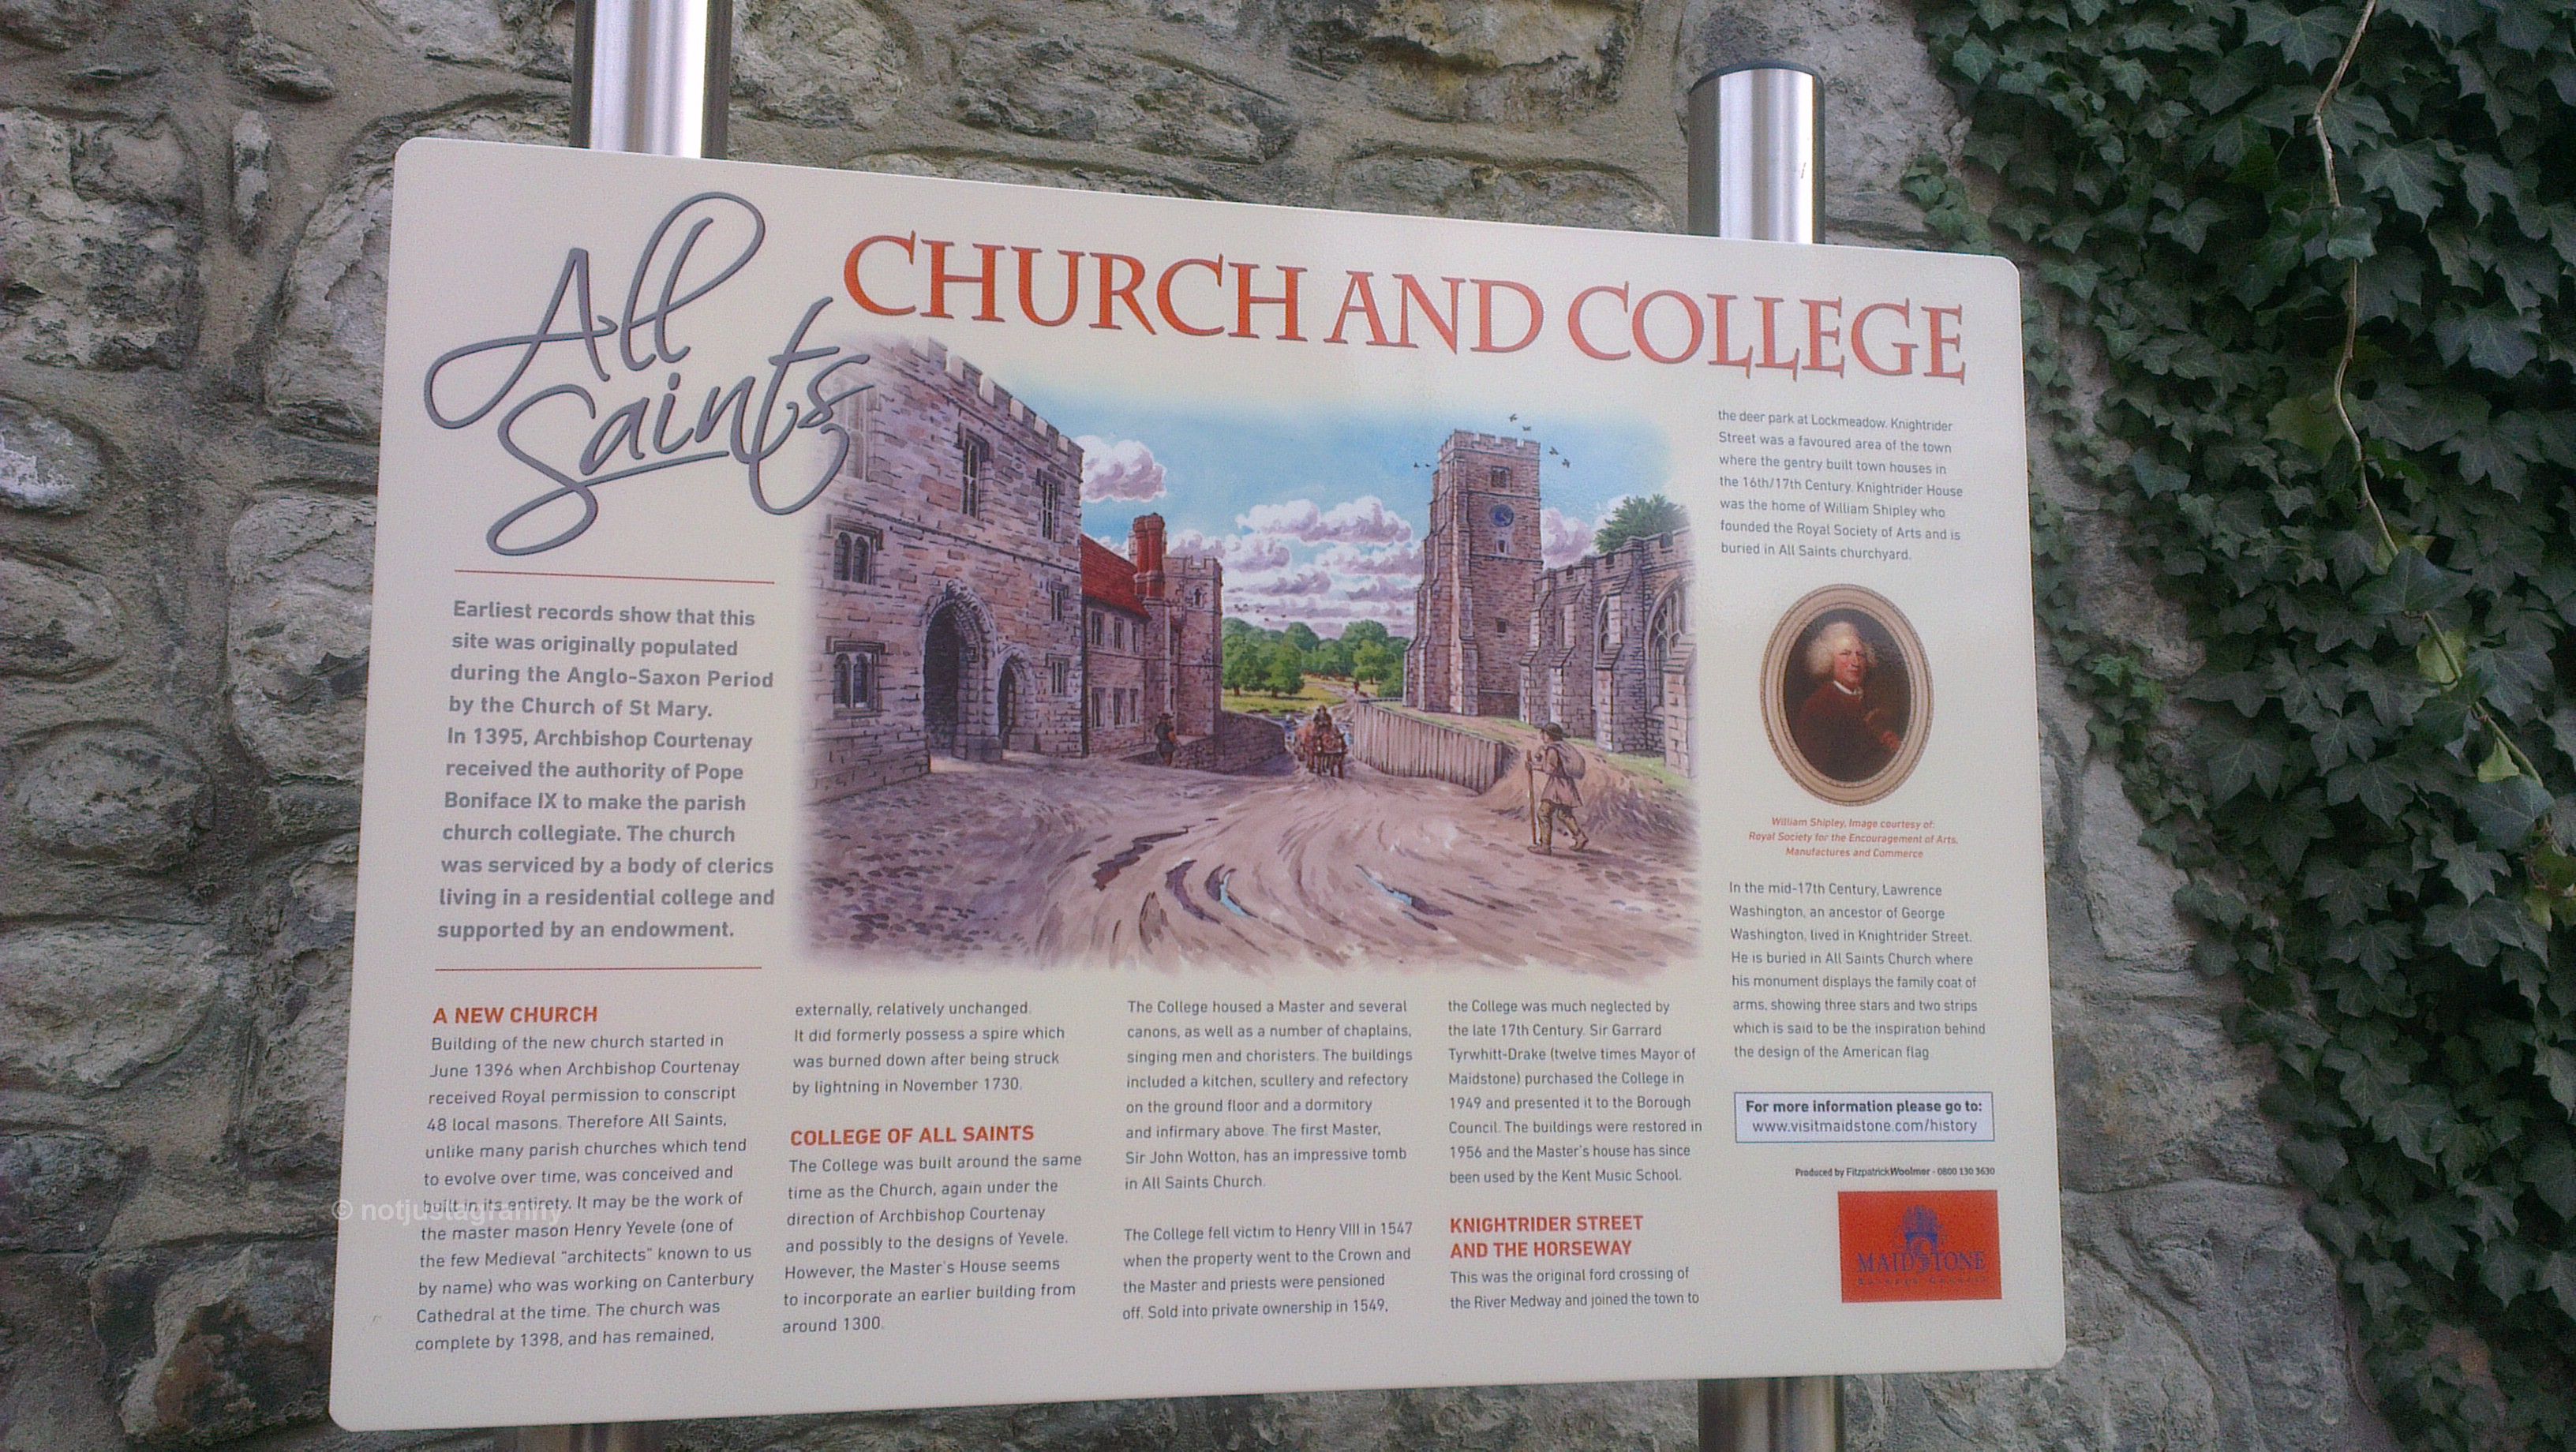 All
Saints
CHURCH AND COLLEGE
Earliest records show that this
site was originally populated
during the Anglo-Saxon Period
by the Church of St Mary.
In 1395, Archbishop Courtenay
received the authority of Pope
Boniface IX to make the parish
church collegiate. The church
was serviced by a body of clerics
living in a residential college and
supported by an endowment.
A NEW CHURCH
Building of the new church started in
June 1396 when Archbishop Courtenay
received Royal permission to conscript
48 local masons. Therefore All Saints,
unlike many parish churches which tend
to evolve over time, was conceived and
built in its entirety. It may be the work of
the master mason Henry Yevele (one of
the few Medieval "architects" known to us
by name) who was working on Canterbury
Cathedral at the time. The church was
complete by 1398, and has remained,
externally, relatively unchanged.
It did formerly possess a spire which
was burned down after being struck
by lightning in November 1730.
COLLEGE OF ALL SAINTS
The College was built around the same
time as the Church, again under the
direction of Archbishop Courtenay
and possibly to the designs of Yevele.
However, the Master's House seems
to incorporate an earlier building from
around 1300.
The College housed a Master and several
canons, as well as a number of chaplains,
singing men and choristers. The buildings
included a kitchen, scullery and refectory
on the ground floor and a dormitory
and infirmary above. The first Master,
Sir John Wotton, has an impressive tomb
in All Saints Church.
The College fell victim to Henry VIII in 1547
when the property went to the Crown and
the Master and priests were pensioned
off. Sold into private ownership in 1549,
the College was much neglected by
the late 17th Century. Sir Garrard
Tyrwhitt-Drake (twelve times Mayor of
Maidstone) purchased the College in
1949 and presented it to the Borough
Council. The buildings were restored in
1956 and the Master's house has since
been used by the Kent Music School.
KNIGHTRIDER STREET
AND THE HORSEWAY
This was the original ford crossing of
the River Medway and joined the town to
the deer park at Lockmeadow. Knightrider
Street was a favoured area of the town
where the gentry built town houses in
the 16th/17th Century. Knightrider House
was the home of William Shipley who
founded the Royal Society of Arts and is
buried in All Saints churchyard.
William Shipley, Image courtesy of:
Royal Society for the Encouragement of Arts,
Manufactures and Commerce
In the mid-17th Century, Lawrence
Washington, an ancestor of George
Washington, lived in Knightrider Street.
He is buried in All Saints Church where
his monument displays the family coat of
arms, showing three stars and two strips
which is said to be the inspiration behind
the design of the American flag
For more information please go to:
www.visitmaidstone.com/history
Produced by FitzpatrickWoolmer - 0800 130 3630
MAIDSTONE
© notjustagranny